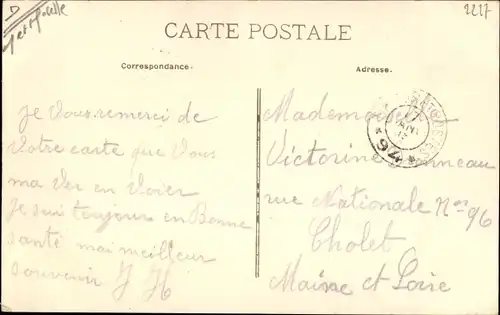 D
M et Moselle
2227
CARTE POSTALE
Correspondance.
Adresse.
Je Vous remerci de
Votre carte que Vous
ma Ver en Voier
Je sui toujour en Bonne
santé mai meilleur
souvenir J H
Mademoisel
Victorine
rue Nationale No 96
Cholet
Maine et Loire